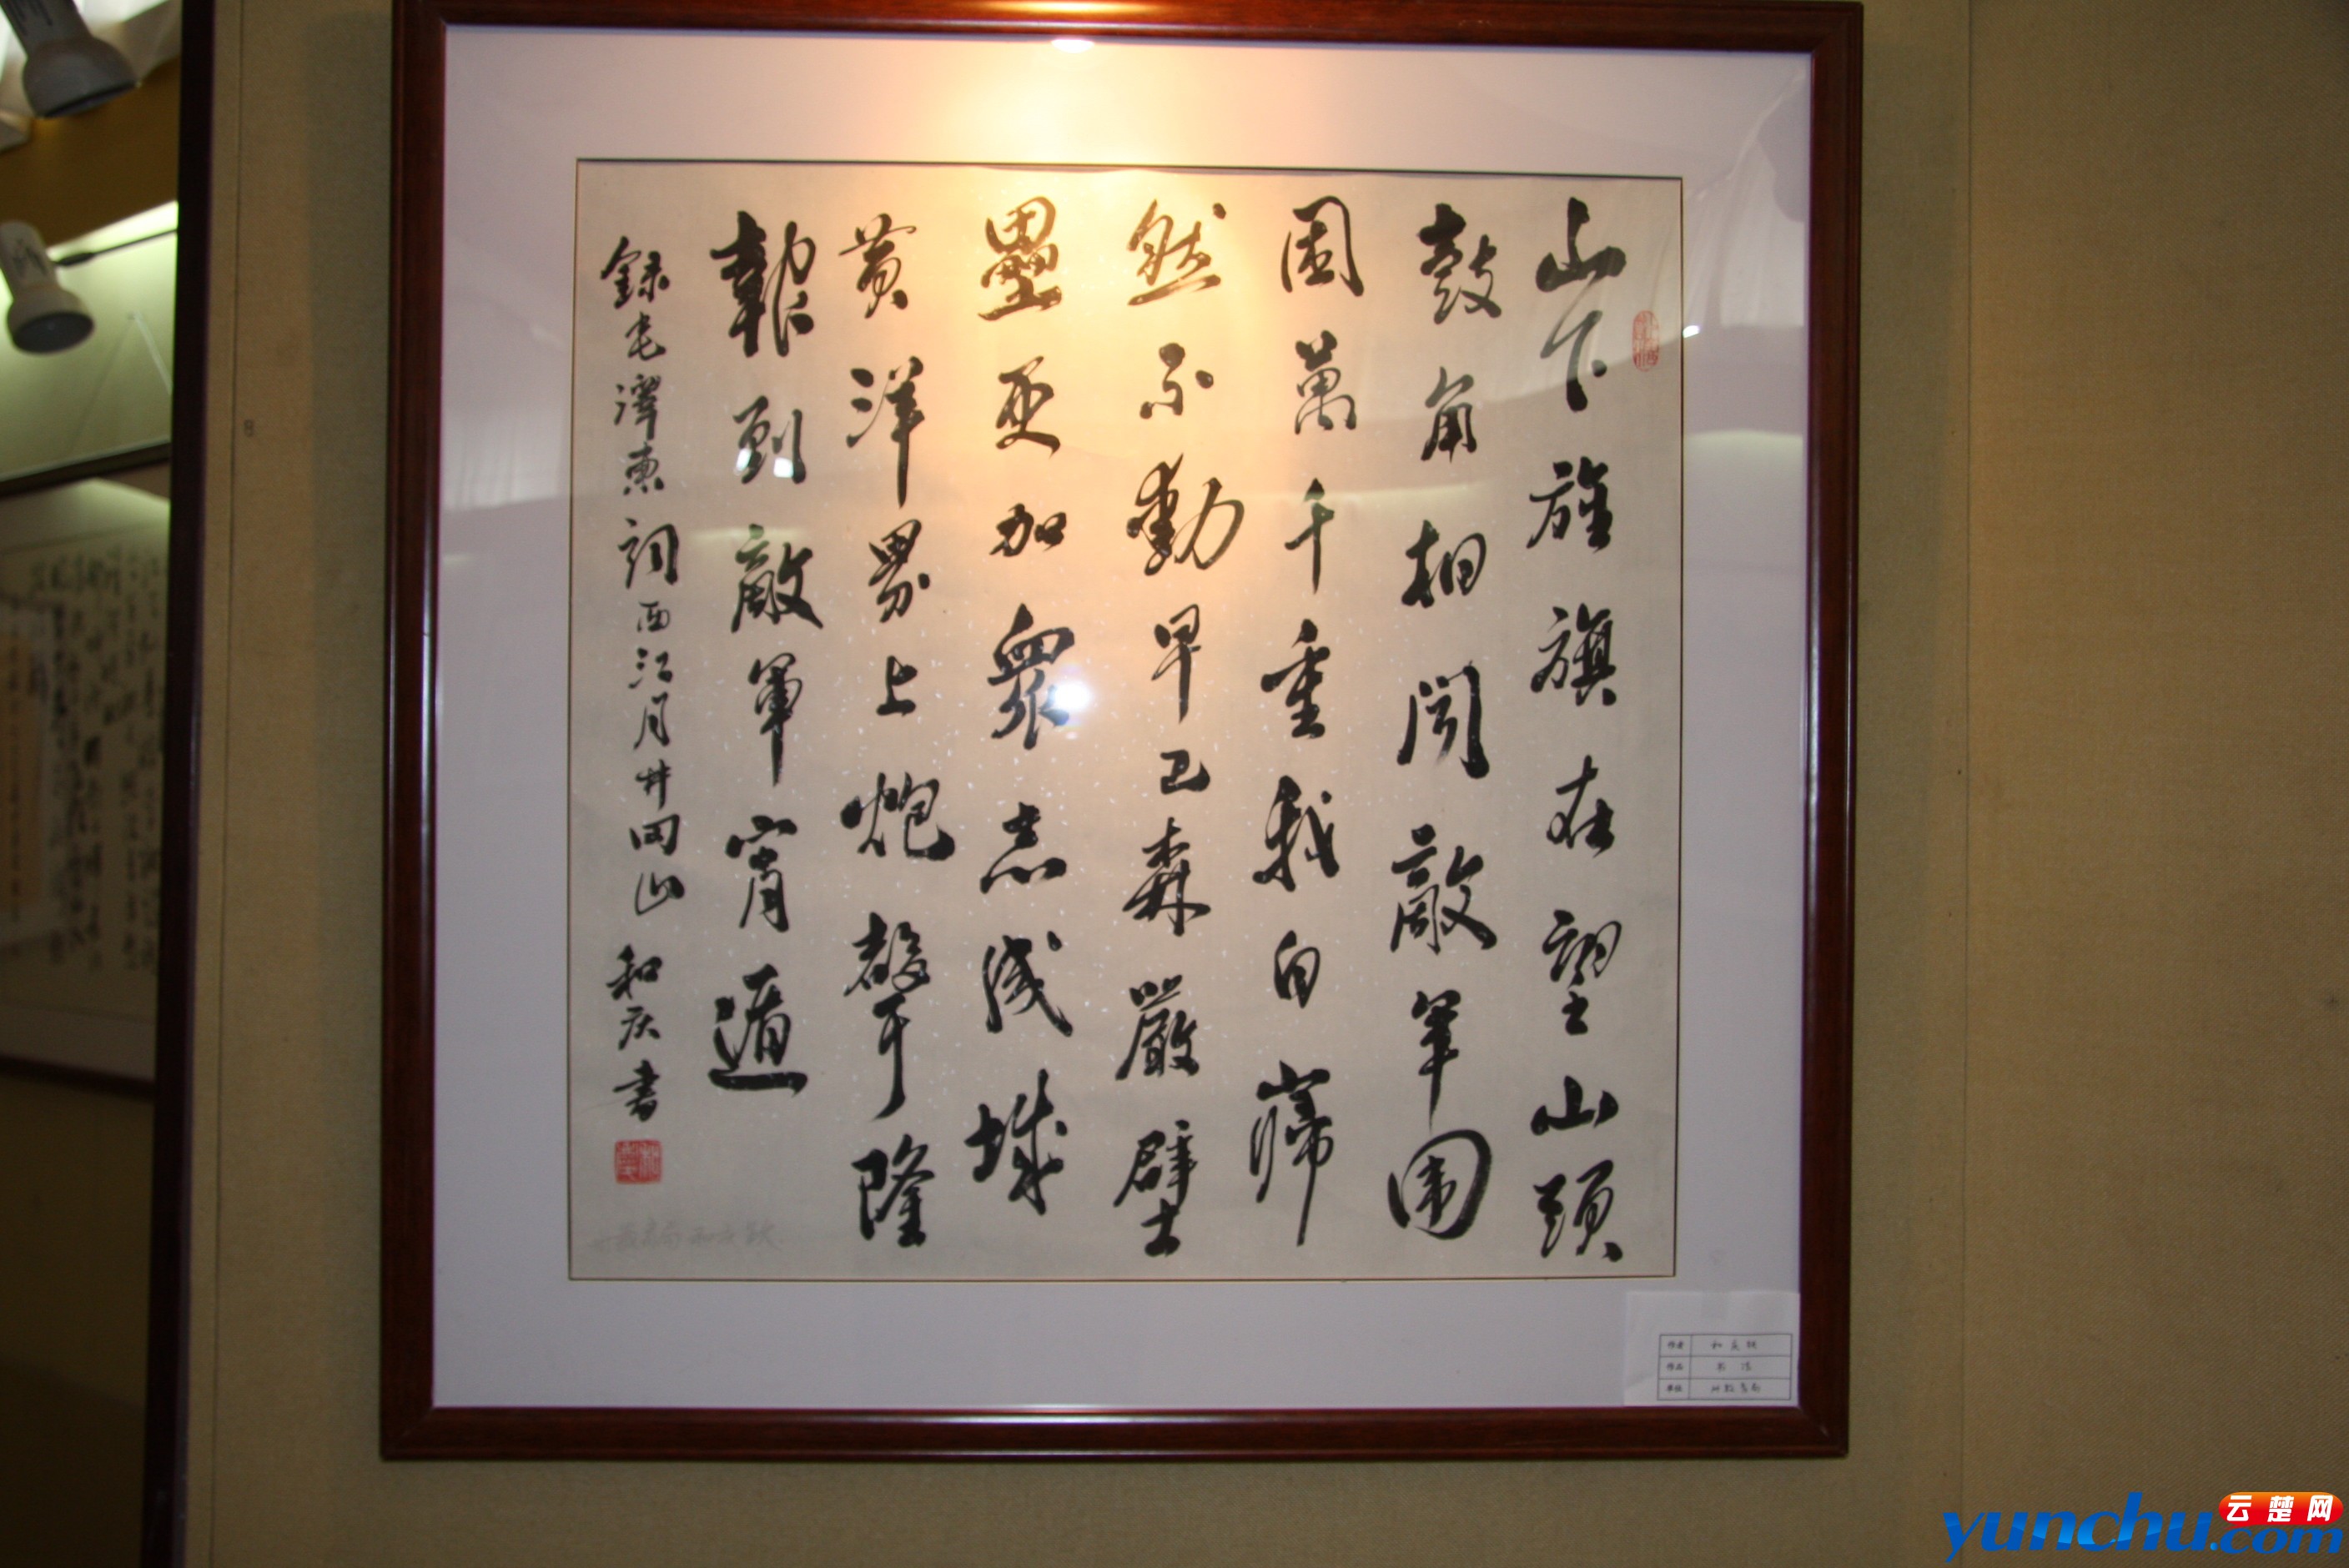 山下旌旗在望山頭
鼓角相聞敵軍圍
困萬千重我自巋
然不動早已森嚴壁
壘更加眾志成城
黄洋界上炮聲隆
報到敵軍宵遁
錄毛澤東詞西江月井岡山 和庆書
作者
作品 书法
单位 州教育局
云楚网
yunchu.com